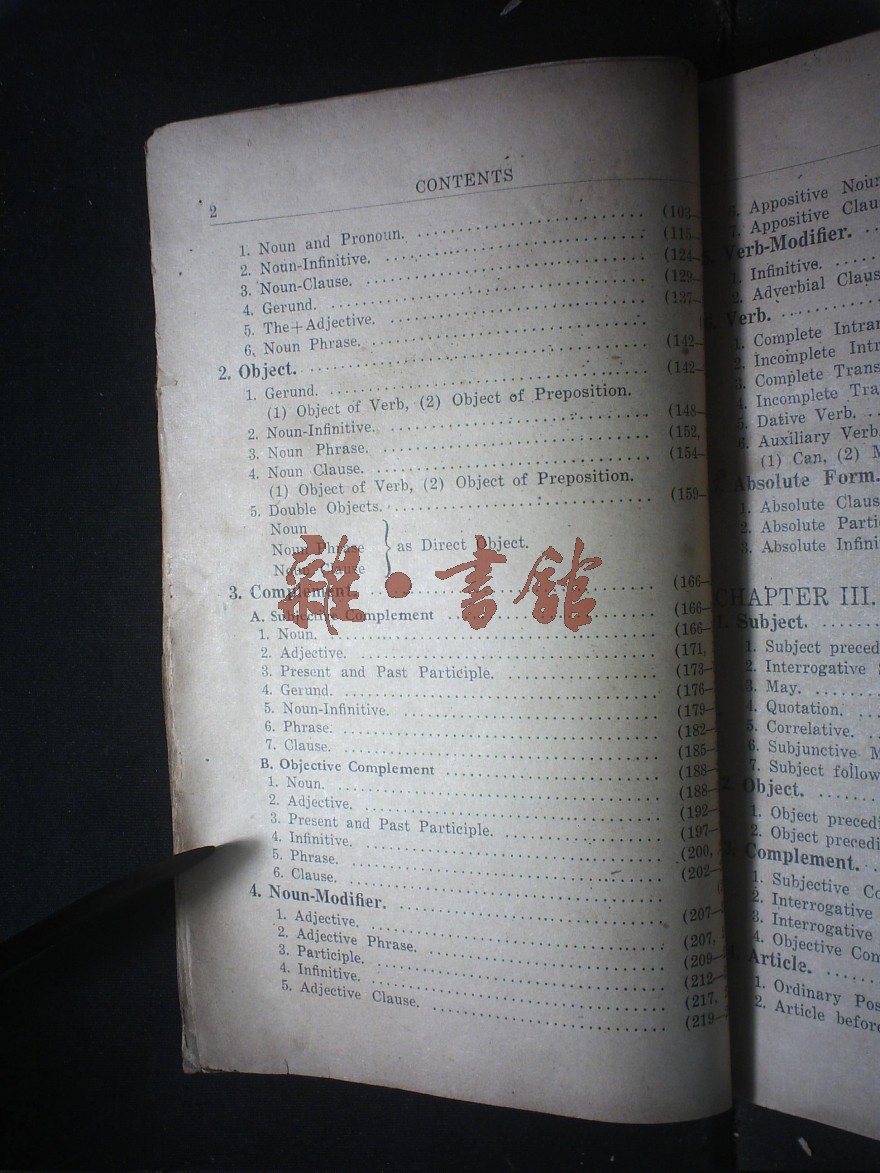 2
CONTENTS
1. Noun and Pronoun. (103–
2. Noun-Infinitive. (115–
3. Noun-Clause. (124–
4. Gerund. (129–
5. The+Adjective. (137–
6. Noun Phrase.
2. Object. (142–
1. Gerund. (142–
(1) Object of Verb, (2) Object of Preposition.
2. Noun-Infinitive. (148–
3. Noun Phrase. (152,
4. Noun Clause. (154–
(1) Object of Verb, (2) Object of Preposition.
5. Double Objects. (159–
Noun
Noun Phrase } as Direct Object.
Noun Clause
3. Complement. (166–
A. Subjective Complement (166–
1. Noun. (166–
2. Adjective. (171,
3. Present and Past Participle. (173–
4. Gerund. (176–
5. Noun-Infinitive. (179–
6. Phrase. (182–
7. Clause. (185–
B. Objective Complement (188–
1. Noun. (188–
2. Adjective. (192–
3. Present and Past Participle. (197–
4. Infinitive. (200,
5. Phrase. (202–
6. Clause.
4. Noun-Modifier. (207–
1. Adjective. (207,
2. Adjective Phrase. (209–
3. Participle. (212–
4. Infinitive. (217,
5. Adjective Clause. (219–
雜·書館
6. Appositive Noun
7. Appositive Clau
Verb-Modifier.
1. Infinitive.
2. Adverbial Claus
Verb.
1. Complete Intran
2. Incomplete Intr
3. Complete Trans
4. Incomplete Tra
5. Dative Verb.
6. Auxiliary Verb.
(1) Can, (2) M
Absolute Form.
1. Absolute Claus
2. Absolute Parti
3. Absolute Infini
CHAPTER III.
1. Subject.
1. Subject preced
2. Interrogative
3. May.
4. Quotation.
5. Correlative.
6. Subjunctive M
7. Subject follow
2. Object.
1. Object precedi
2. Object precedi
Complement.
1. Subjective Co
2. Interrogative
3. Interrogative
4. Objective Com
Article.
1. Ordinary Pos
2. Article before